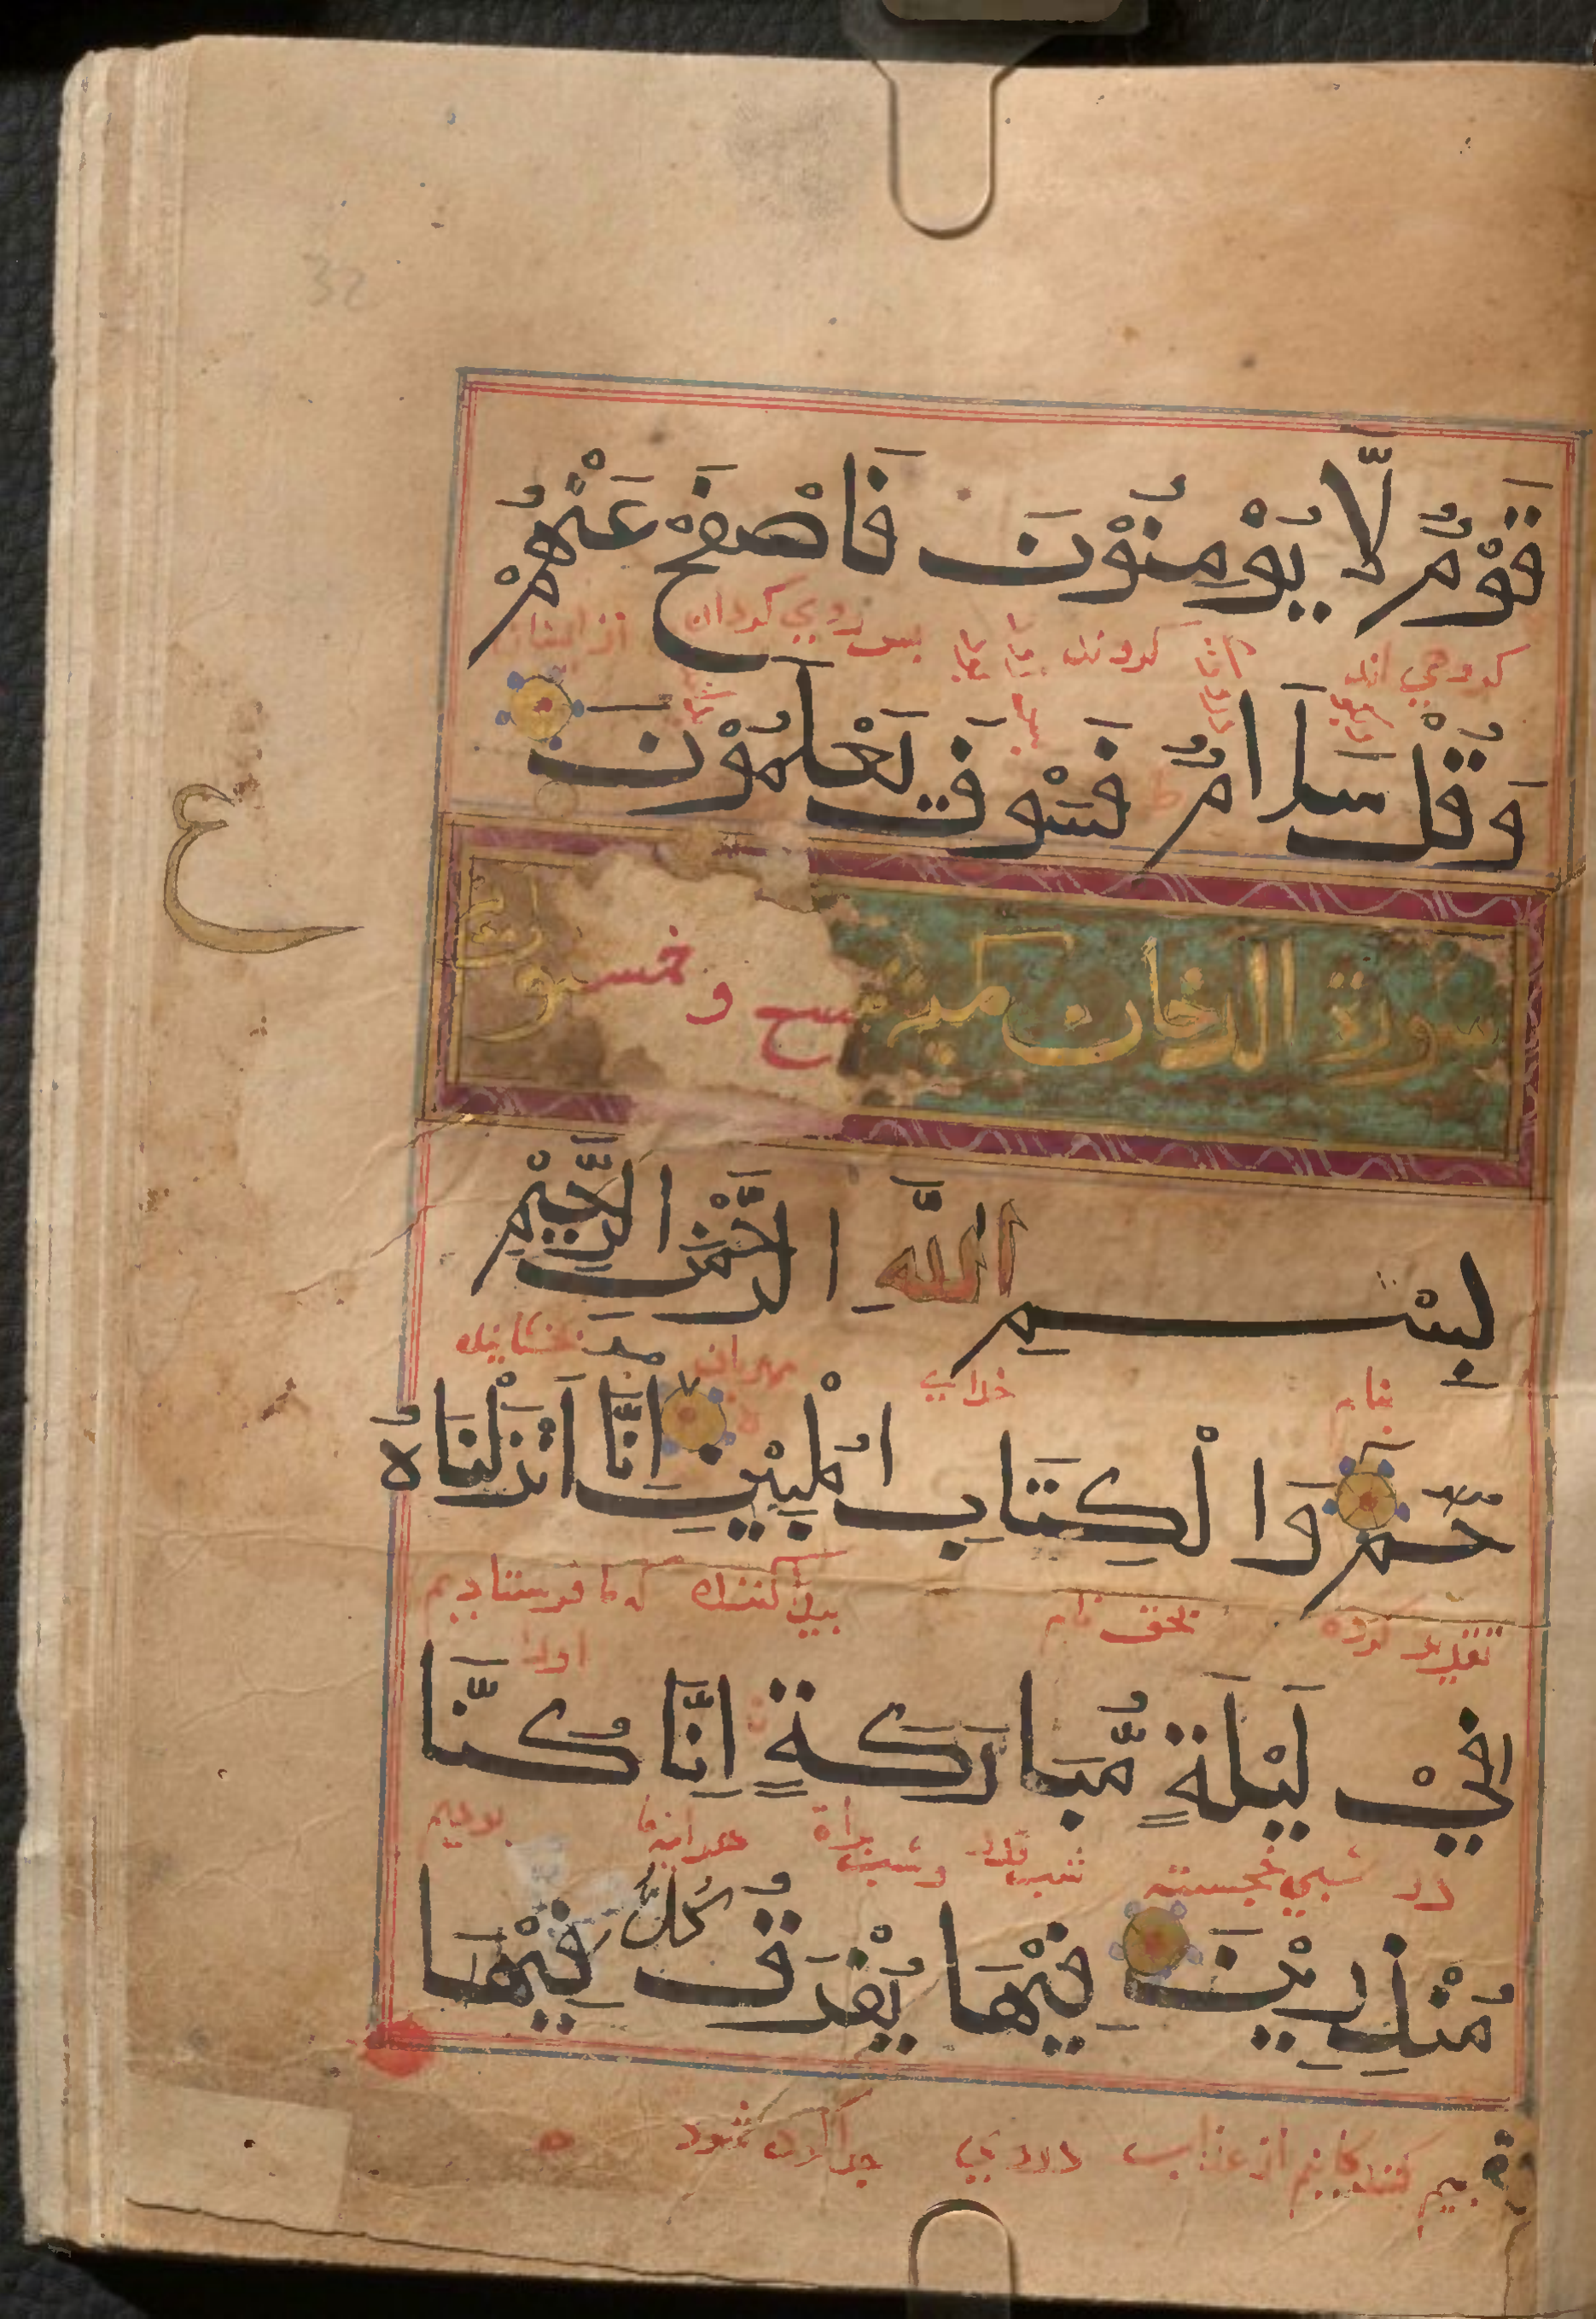 32
قَوْمٌ لَّا يُؤْمِنُوْنَ فَاصْفَحْ عَنْهُمْ
كروهي اند كردند پس روي كردان از ايشان
وَقُلْ سَلَامٌ فَسَوْفَ تَعْلَمُوْنَ
ع
سورة الدخان مكية تسع وخمسون
بِسْمِ اللَّهِ الرَّحْمَٰنِ الرَّحِيْمِ
بنام خداي مهربان بخشاينده
حٰمٓ وَالْكِتَابِ الْمُبِيْنِ اِنَّا اَنْزَلْنَاهُ
تقدير كرده بحق كننده كه ما فرستاديم
اورا
فِيْ لَيْلَةٍ مُّبَارَكَةٍ اِنَّا كُنَّا
در شبي خجسته شب قدر وشب براة بوديم
مُنْذِرِيْنَ فِيْهَا يُفْرَقُ كُلُّ فِيْهَا
بيم كنندكانيم از عذاب دروي جدا كرده شود